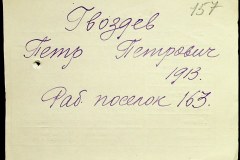 157
Гвоздев
Петр Петрович
1913.
Раб. поселок 163.